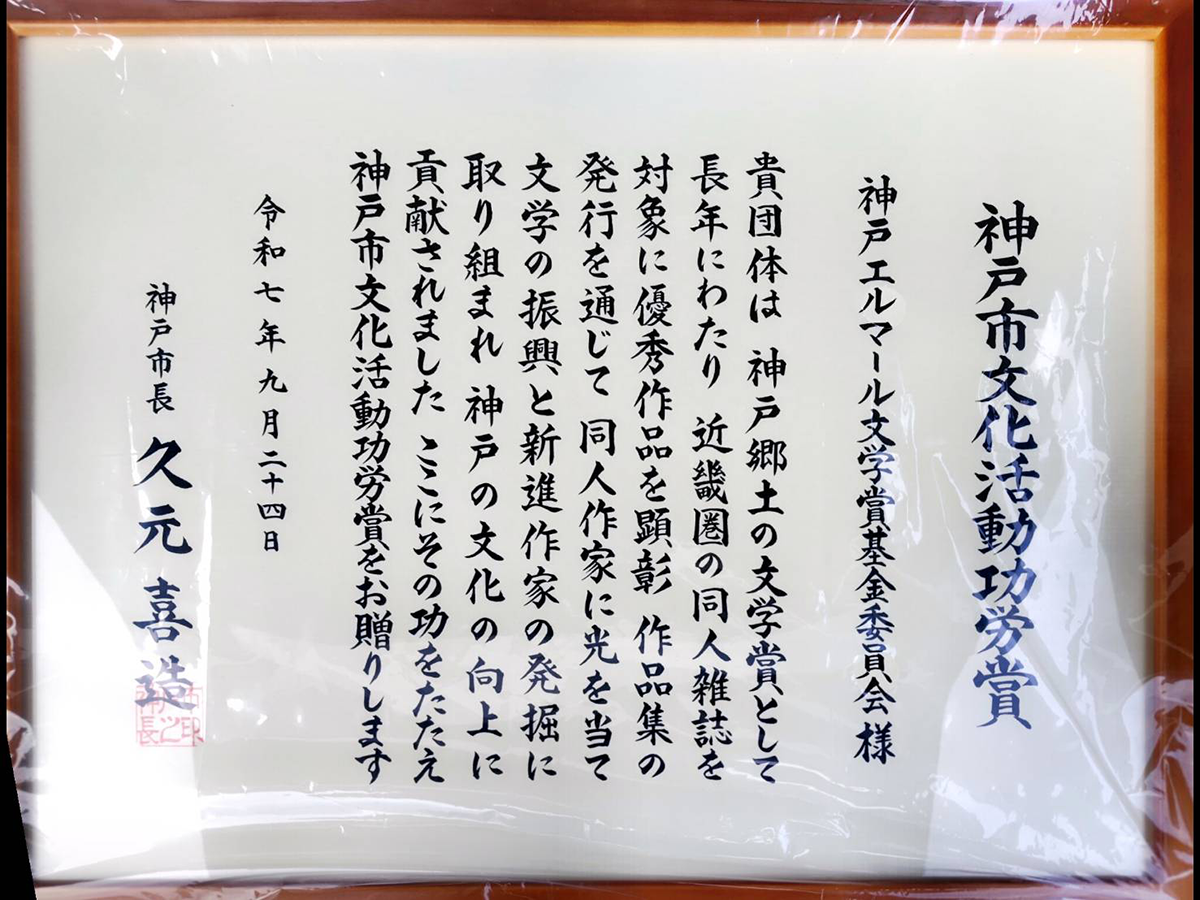 神戸市文化活動功労賞
神戸エルマール文学賞基金委員会様
貴団体は 神戸郷土の文学賞として
長年にわたり 近畿圏の同人雑誌を
対象に優秀作品を顕彰 作品集の
発行を通じて 同人作家に光を当て
文学の振興と新進作家の発掘に
取り組まれ 神戸の文化の向上に
貢献されました ここにその功をたたえ
神戸市文化活動功労賞をお贈りします
令和七年九月二十四日
神戸市長 久元喜造